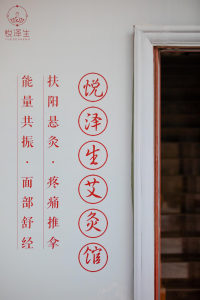 悦泽生
悦泽生艾灸馆
扶阳悬灸·疼痛推拿
能量共振·面部舒经